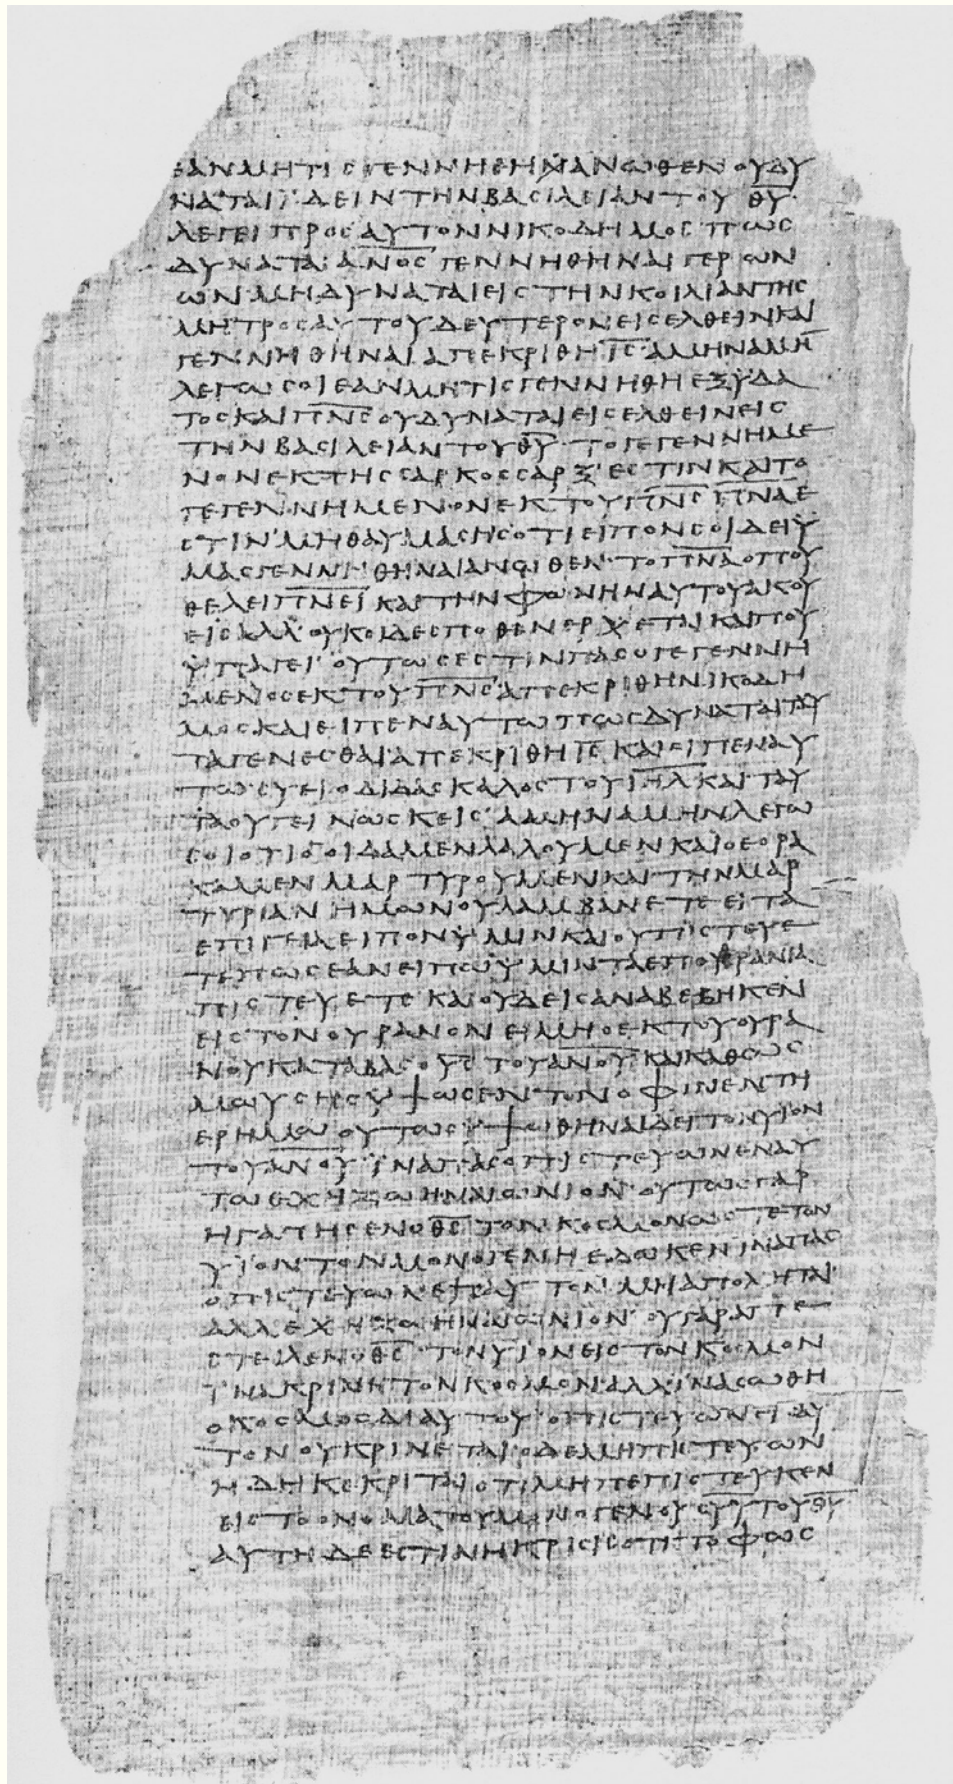 ΕΑΝΜΗΤΙΣΓΕΝΝΗΘΗΑΝΩΘΕΝΟΥΔΥ
ΝΑΤΑΙΪΔΕΙΝΤΗΝΒΑΣΙΛΕΙΑΝΤΟΥΘ̅Υ̅
ΛΕΓΕΙΠΡΟΣΑΥΤΟΝΝΙΚΟΔΗΜΟΣΠΩΣ
ΔΥΝΑΤΑΙΑ̅Ν̅Ο̅Σ̅ΓΕΝΝΗΘΗΝΑΙΓΕΡΩΝ
ΩΝΜΗΔΥΝΑΤΑΙΕΙΣΤΗΝΚΟΙΛΙΑΝΤΗΣ
ΜΗΤΡΟΣΑΥΤΟΥΔΕΥΤΕΡΟΝΕΙΣΕΛΘΕΙΝΚΑΙ
ΓΕΝΝΗΘΗΝΑΙΑΠΕΚΡΙΘΗΙ̅Σ̅ΑΜΗΝΑΜΗ̅
ΛΕΓΩΣΟΙΕΑΝΜΗΤΙΣΓΕΝΝΗΘΗΕΞΫΔΑ
ΤΟΣΚΑΙΠ̅Ν̅Σ̅ΟΥΔΥΝΑΤΑΙΕΙΣΕΛΘΕΙΝΕΙΣ
ΤΗΝΒΑΣΙΛΕΙΑΝΤΟΥΘ̅Υ̅ΤΟΓΕΓΕΝΝΗΜΕ
ΝΟΝΕΚΤΗΣΣΑΡΚΟΣΣΑΡΞΕΣΤΙΝΚΑΙΤΟ
ΓΕΓΕΝΝΗΜΕΝΟΝΕΚΤΟΥΠ̅Ν̅Σ̅Π̅Ν̅Α̅Ε
ΣΤΙΝΜΗΘΑΥΜΑΣΗΣΟΤΙΕΙΠΟΝΣΟΙΔΕΙΫ
ΜΑΣΓΕΝΝΗΘΗΝΑΙΑΝΩΘΕΝΤΟΠ̅Ν̅Α̅ΟΠΟΥ
ΘΕΛΕΙΠ̅Ν̅Ε̅Ι̅ΚΑΙΤΗΝΦΩΝΗΝΑΥΤΟΥΑΚΟΥ
ΕΙΣΑΛΛΟΥΚΟΙΔΕΣΠΟΘΕΝΕΡΧΕΤΑΙΚΑΙΠΟΥ
ΫΠΑΓΕΙΟΥΤΩΣΕΣΤΙΝΠΑΣΟΓΕΓΕΝΝΗ
ΜΕΝΟΣΕΚΤΟΥΠ̅Ν̅Σ̅ΑΠΕΚΡΙΘΗΝΙΚΟΔΗ
ΜΟΣΚΑΙΕΙΠΕΝΑΥΤΩΠΩΣΔΥΝΑΤΑΙΤΑΥ
ΤΑΓΕΝΕΣΘΑΙΑΠΕΚΡΙΘΗΙ̅Σ̅ΚΑΙΕΙΠΕΝΑΥ
ΤΩΣΥΕΙΟΔΙΔΑΣΚΑΛΟΣΤΟΥΙ̅Η̅Λ̅ΚΑΙΤΑΥ
ΤΑΟΥΓΕΙΝΩΣΚΕΙΣΑΜΗΝΑΜΗΝΛΕΓΩ
ΣΟΙΟΤΙΟΟΙΔΑΜΕΝΛΑΛΟΥΜΕΝΚΑΙΟΕΟΡΑ
ΚΑΜΕΝΜΑΡΤΥΡΟΥΜΕΝΚΑΙΤΗΝΜΑΡ
ΤΥΡΙΑΝΗΜΩΝΟΥΛΑΜΒΑΝΕΤΕΕΙΤΑ
ΕΠΙΓΕΙΑΕΙΠΟΝΫΜΙΝΚΑΙΟΥΠΙΣΤΕΥΕ
ΤΕΠΩΣΕΑΝΕΙΠΩΫΜΙΝΤΑΕΠΟΥΡΑΝΙΑ
ΠΙΣΤΕΥΕΤΕΚΑΙΟΥΔΕΙΣΑΝΑΒΕΒΗΚΕΝ
ΕΙΣΤΟΝΟΥΡΑΝΟΝΕΙΜΗΟΕΚΤΟΥΟΥΡΑ
ΝΟΥΚΑΤΑΒΑΣΟΥ̅Σ̅ΤΟΥΑ̅Ν̅Ο̅Υ̅ΚΑΙΚΑΘΩΣ
ΜΩΥΣΗΣΫΨΩΣΕΝΤΟΝΟΦΙΝΕΝΤΗ
ΕΡΗΜΩΟΥΤΩΣΫΨΩΘΗΝΑΙΔΕΙΤΟΝΥΙΟΝ
ΤΟΥΑ̅Ν̅Ο̅Υ̅ΪΝΑΠΑΣΟΠΙΣΤΕΥΩΝΕΝΑΥ
ΤΩΕΧΗΖΩΗΝΑΙΩΝΙΟΝΟΥΤΩΣΓΑΡ
ΗΓΑΠΗΣΕΝΟΘ̅Σ̅ΤΟΝΚΟΣΜΟΝΩΣΤΕΤΟΝ
ΥΪΟΝΤΟΝΜΟΝΟΓΕΝΗΕΔΩΚΕΝΪΝΑΠΑΣ
ΟΠΙΣΤΕΥΩΝΕΙΣΑΥΤΟΝΜΗΑΠΟΛΗΤΑΙ
ΑΛΛΕΧΗΖΩΗΝΑΙΩΝΙΟΝΟΥΓΑΡΑΠΕ
ΣΤΕΙΛΕΝΟΘ̅Σ̅ΤΟΝΥΪΟΝΕΙΣΤΟΝΚΟΣΜΟΝ
ΪΝΑΚΡΙΝΗΤΟΝΚΟΣΜΟΝΑΛΛΪΝΑΣΩΘΗ
ΟΚΟΣΜΟΣΔΙΑΥΤΟΥΟΠΙΣΤΕΥΩΝΕΙΣΑΥ
ΤΟΝΟΥΚΡΙΝΕΤΑΙΟΔΕΜΗΠΙΣΤΕΥΩΝ
ΗΔΗΚΕΚΡΙΤΑΙΟΤΙΜΗΠΕΠΙΣΤΕΥΚΕΝ
ΕΙΣΤΟΟΝΟΜΑΤΟΥΜΟΝΟΓΕΝΟΥΣΥ̅Υ̅ΤΟΥΘ̅Υ̅
ΑΥΤΗΔΕΕΣΤΙΝΗΚΡΙΣΙΣΟΤΙΤΟΦΩΣ